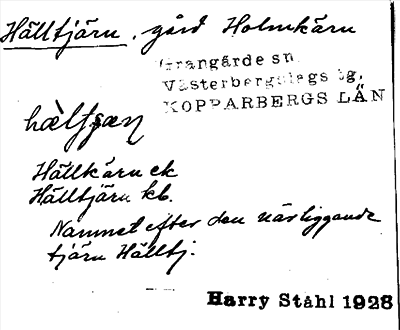 Hälltjärn, gård Holmkärn
Grangärde sn.
Västerbergslags tg.
KOPPARBERGS LÄN
Hällkärn ek
Hälltjärn kb.
Namnet efter den närliggande
tjärn Hälltj.
Harry Ståhl 1928